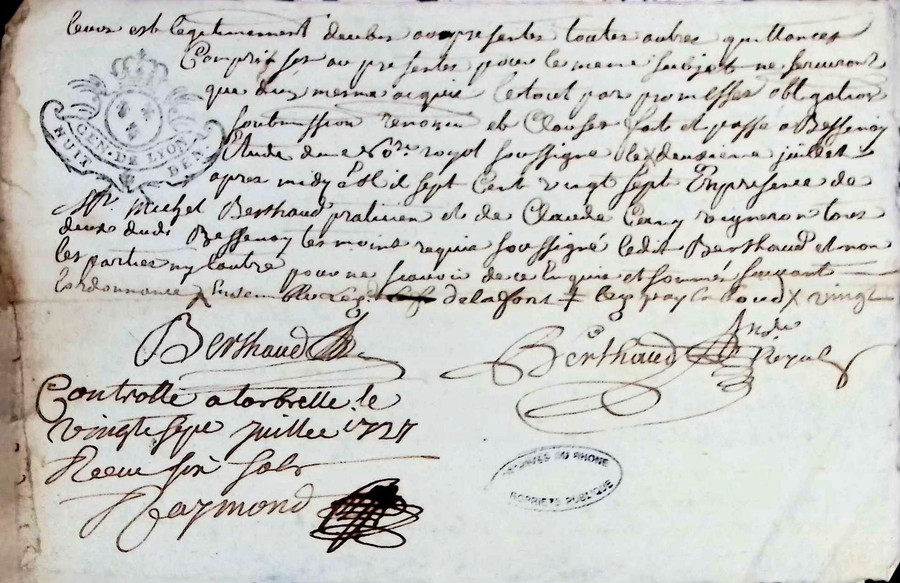 leurs est legitimement deubes aux presentes toutes autres quittances
Comprises au presentes pour le meme subject ne serviront
que d'un mesme acquis le tout par promesses obligation
soubmission renon et Clauses fait et passé a Bessenay
Etude du No.re royal soussigné le x deuxieme juillet
apres midy mil sept Cent vingt sept En presence de
Mr. Michel Berthaud praticien et de Claude vigneron tous
deux dudt Bessenay temoins requis soussigné ledit Berthaud et non
les parties ny l'autre pour ne scavoir de ce Enquis et sommé suivant
l'ordonnance
delafont
x vingt
Berthaud
Berthaud
Royal
Controllé a larbrelle le
vingt sept juillet 1727
Receu six sols
Raymond
GEN. DE LYON
HUIT DEN.
ARCHIVES DU RHONE
PROPRIETE PUBLIQUE